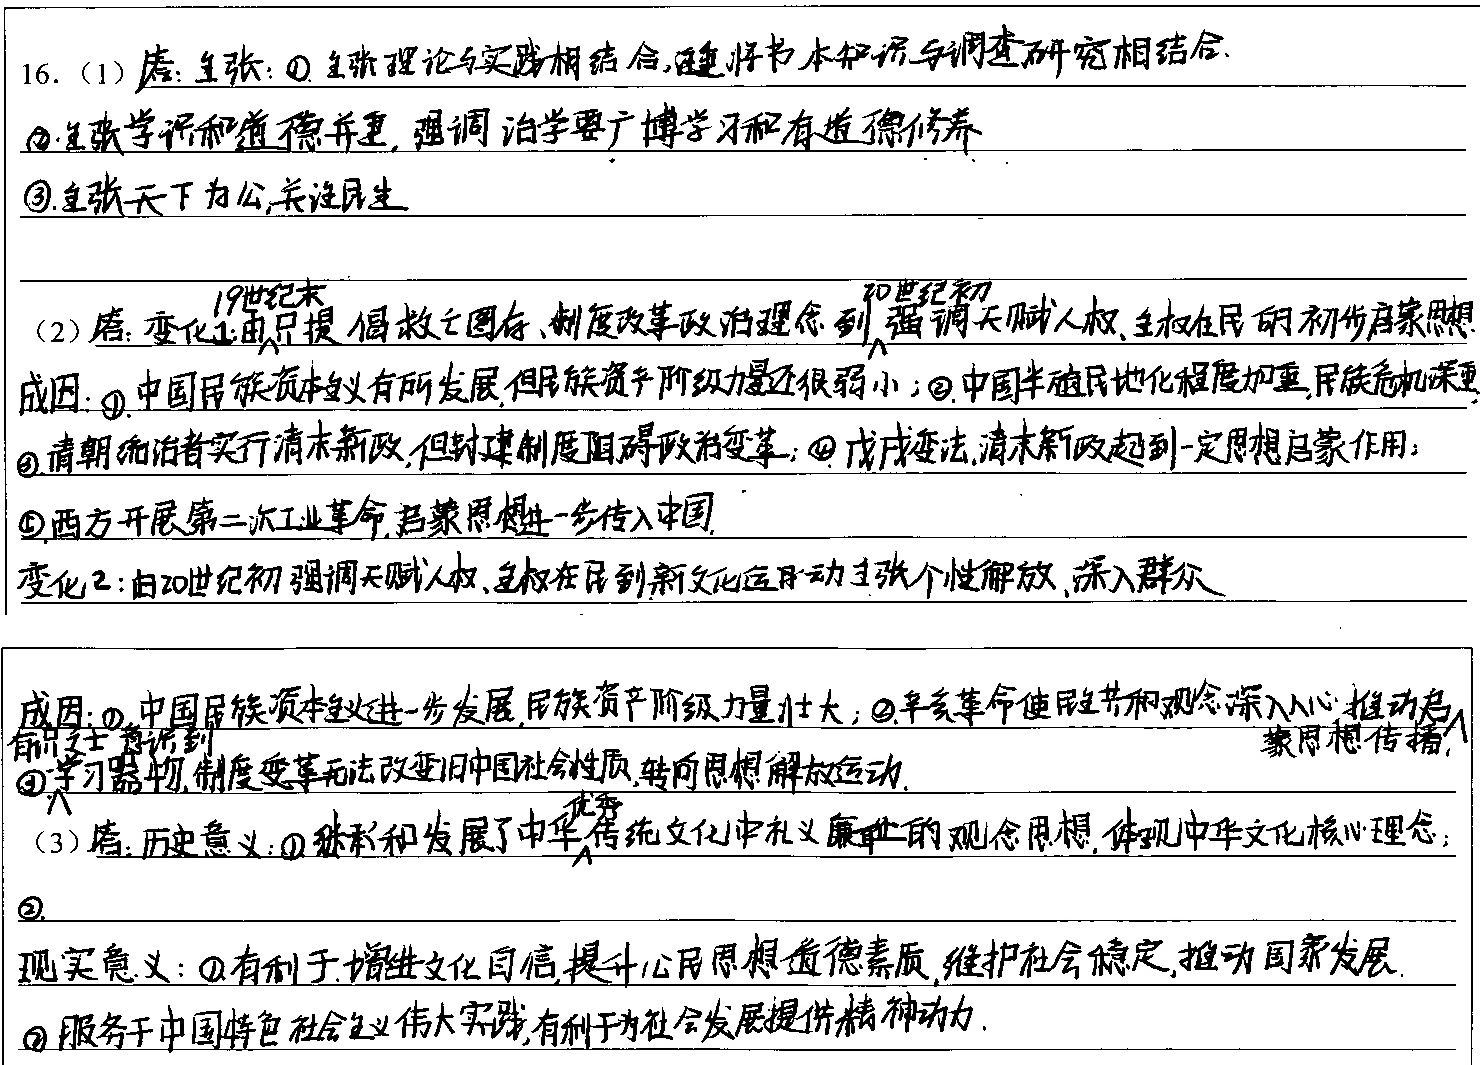 16.（1）答：主张：①.主张理论与实践相结合,注重将书本知识与调查研究相结合.
②.主张学识和道德并重，强调治学要广博学习和有道德修养
③.主张天下为公,关注民生
19世纪末 20世纪初
（2）答：变化1:由只提倡救亡图存、制度改革政治理念到强调天赋人权、主权在民的初步启蒙思想.
成因：①.中国民族资本主义有所发展,但民族资产阶级力量还很弱小；②.中国半殖民地化程度加重,民族危机深重;
③.清朝统治者实行清末新政,但封建制度阻碍政治变革；④.戊戌变法,清末新政起到一定思想启蒙作用；
⑤.西方开展第二次工业革命,启蒙思想进一步传入中国.
变化2：由20世纪初强调天赋人权、主权在民到新文化运动主张个性解放、深入群众
成因：①.中国民族资本主义进一步发展,民族资产阶级力量壮大；②.辛亥革命使民主共和观念深入人心,推动启
有识之士意识到 蒙思想传播,
③.学习器物,制度变革无法改变旧中国社会性质,转向思想解放运动.
优秀
（3）答：历史意义：①.继承和发展了中华传统文化中礼义廉耻的观念思想，体现中华文化核心理念；
②.
现实意义：①.有利于增进文化自信,提升公民思想道德素质,维护社会稳定,推动国家发展.
②.服务于中国特色社会主义伟大实践,有利于为社会发展提供精神动力.